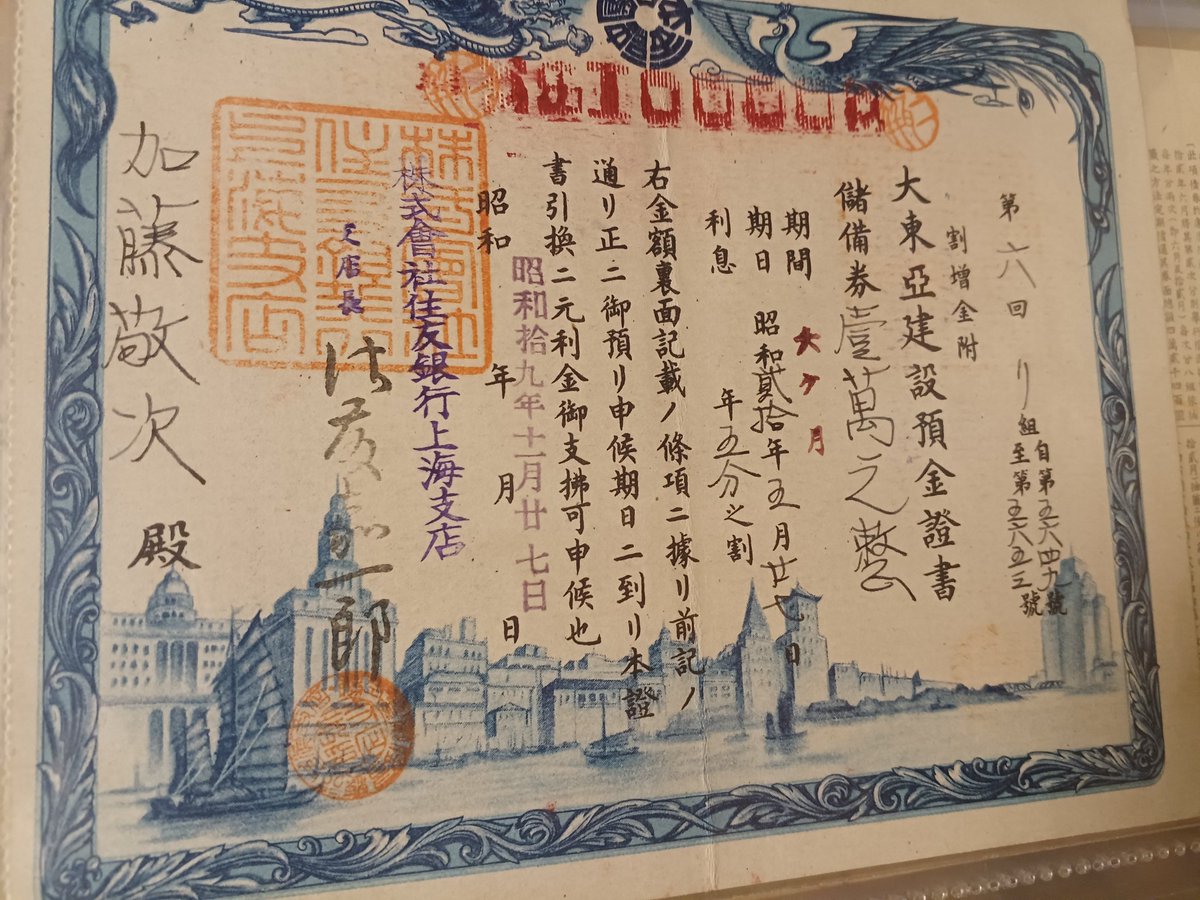 第六回
リ組
自第五六四九號
至第五六五三號
割増金附
大東亞建設預金證書
儲備券壹萬元整
期間 六ケ月
期日 昭和貳拾年五月廿七日
利息 年五分之割
右金額裏面記載ノ條項二據リ前記ノ
通リ正二御預リ申候期日二到リ本證
書引換二元利金御支拂可申候也
昭和 年 月 日
昭和拾九年十一月廿七日
株式會社住友銀行上海支店
支店長
加藤敬次 殿